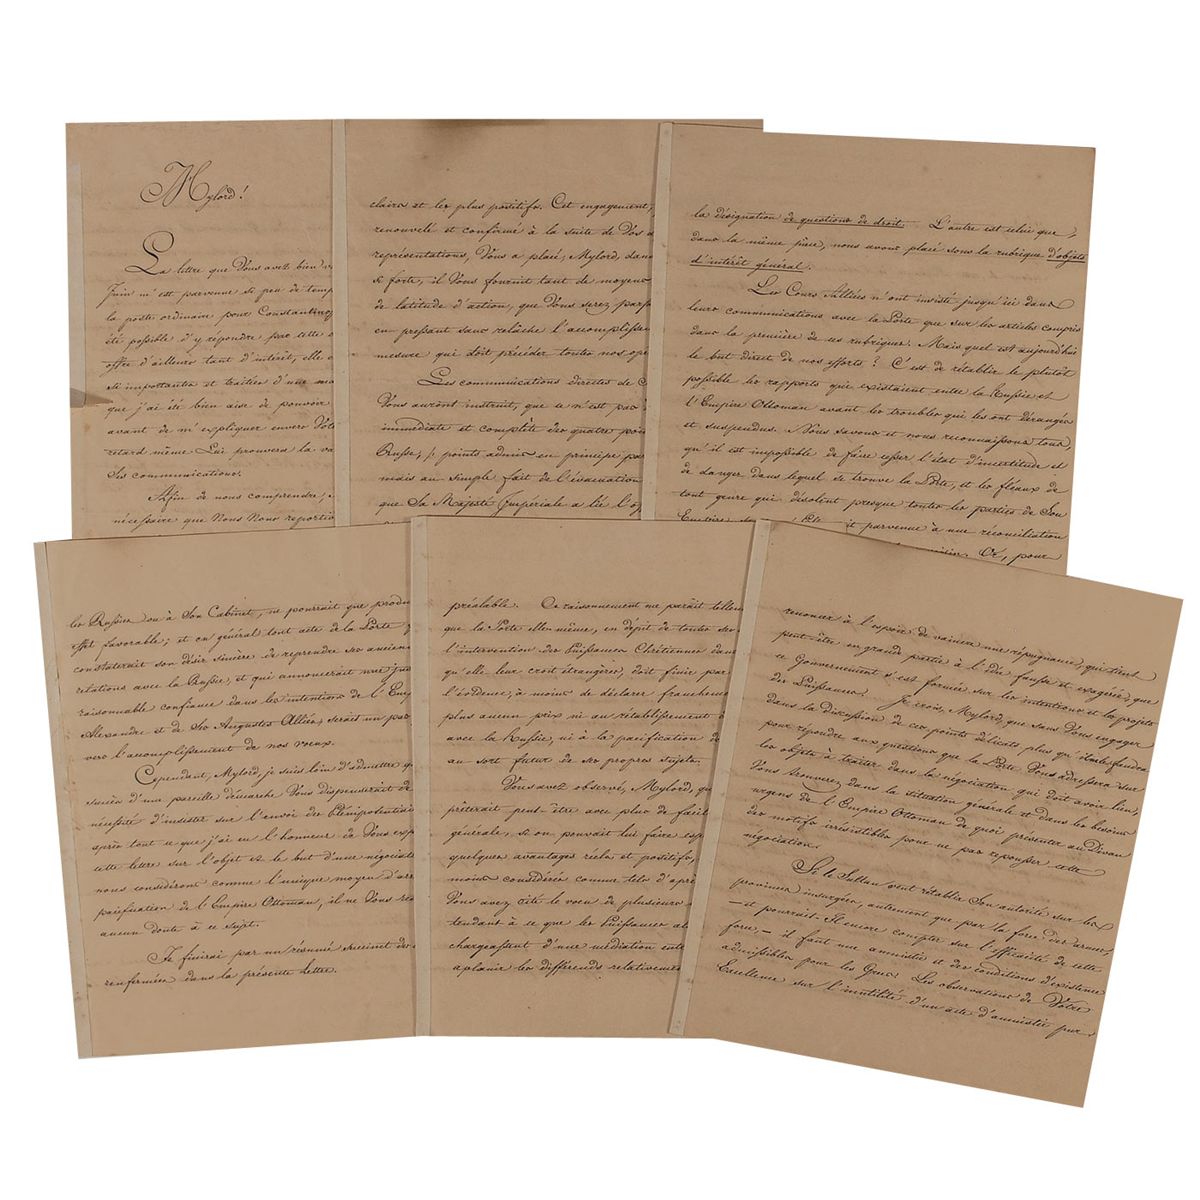 Mylord!
La lettre que Vous avez bien v
Juin m'est parvenue si peu de temp
la poste ordinaire pour Constantinop
été possible d'y répondre par cette o
offre d'ailleurs tant d'intérêt, elle
si importantes et traitées d'une ma
que j'ai été bien aise de pouvoir
avant de m'expliquer envers Vot
retard même Lui prouvera la va
Ses communications.
Afin de nous comprendre,
nécessaire que Nous Nous reportio
claire et les plus positifs. Cet engagement,
renouvelé et confirmé à la suite de Vos
représentations, Vous a placé, Mylord, dans
si forte, il Vous fournit tant de moyens
de latitude d'action, que Vous serez parf
en pressant sans relâche l'accomplisse
mesure qui doit précéder toutes nos opé
Les communications directes de
Vous auront instruit, que ce n'est pas
immédiate et complète des quatre poin
Russe, points admis en principe par
mais au simple fait de l'évacuation
que Sa Majesté Impériale a lié l'o
la désignation de questions de droit. L'autre est celui que,
dans la même pièce, nous avons placé sous la rubrique d'objets
d'intérêt général.
Les Cours Alliées n'ont insisté jusqu'ici dans
leurs communications avec la Porte que sur les articles compris
dans la première de ces rubriques. Mais quel est aujourd'hui
le but direct de nos efforts? C'est de rétablir le plutôt
possible les rapports qui existaient entre la Russie et
l'Empire Ottoman avant les troubles qui les ont dérangés
et suspendus. Nous savons et nous reconnaissons tous,
qu'il est impossible de faire cesser l'état d'incertitude et
de danger dans lequel se trouve la Porte, et les fléaux de
tout genre qui désolent presque toutes les parties de Son
Empire, soit parvenue à une réconciliation
Or, pour
les Russes ou à Son Cabinet, ne pourrait que produ
effet favorable; et en général tout acte de la Porte
constaterait son désir sincère de reprendre ses ancien
relations avec la Russie, et qui annoncerait une jus
raisonnable confiance dans les intentions de l'Emp
Alexandre et de Ses Augustes Alliés, serait un pas
vers l'accomplissement de nos voeux.
Cependant, Mylord, je suis loin d'admettre q
succès d'une pareille démarche Vous dispenserait de
nécessité d'insister sur l'envoi des Plénipotentiai
après tout ce que j'ai eu l'honneur de Vous exp
cette lettre sur l'objet et le but d'une négociati
nous considérons comme l'unique moyen d'arr
pacification de l'Empire Ottoman, il ne Vous res
aucun doute à ce sujet.
Je finirai par un résumé succinct des
renfermées dans la présente lettre.
préalable. Ce raisonnement me paraît tellem
que la Porte elle même, en dépit de toutes ses
l'intervention des Puissances Chrétiennes dans
qu'elle leur croit étrangères, doit finir par
l'évidence, à moins de déclarer francheme
plus aucun prix ni au rétablissement
avec la Russie, ni à la pacification de
au sort futur de ses propres sujets.
Vous avez observé, Mylord, qu
prêterait peut être avec plus de facil
générale, si on pouvait lui faire esp
quelques avantages réels et positifs,
moins considérés comme tels d'aprè
Vous avez cité le voeu de plusieurs
tendant à ce que les Puissances al
chargeassent d'une médiation entre
aplanir les différends relativement
renoncer à l'espoir de vaincre une répugnance, qui tient
peut-être en grande partie à l'idée fausse et exagérée, que
ce Gouvernement s'est formée sur les intentions et les projets
des Puissances. Je crois, Mylord, que sans Vous engager
dans la discussion de ces points délicats plus qu'il ne faudra
pour répondre aux questions que la Porte Vous adressera sur
les objets à traiter dans la négociation qui doit avoir lieu,
Vous trouverez dans la situation générale et dans les besoins
urgens de l'Empire Ottoman de quoi présenter au Divan
des motifs irrésistibles pour ne pas repousser cette
négociation.
Si le Sultan veut rétablir Son autorité sur les
provinces insurgées, autrement que par la force des armes,
— et pourrait-Il encore compter sur l'efficacité de cette
force, — il faut une amnistie et des conditions d'existence
admissibles pour les Grecs. Les observations de Votre
Excellence sur l'inutilité d'un acte d'amnistie pur